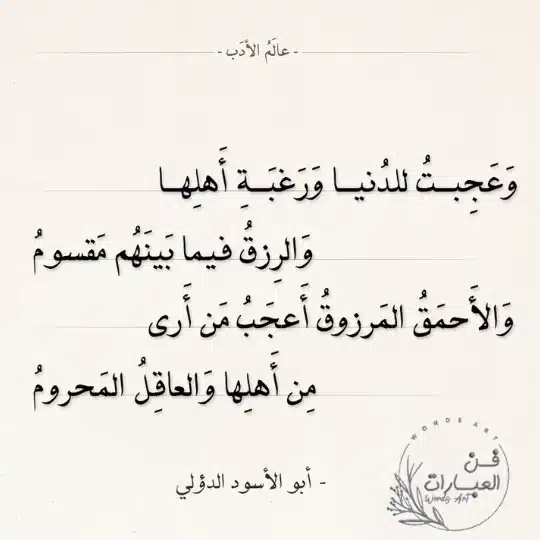 - عالَمُ الأدَب -
وَعَجِبــتُ للدُنيــا وَرَغبَــةِ أَهلِهــا
وَالرِزقُ فيما بَينَهُم مَقسومُ
وَالأَحمَقُ المَرزوقُ أَعجَبُ مَن أَرى
مِن أَهلِها وَالعاقِلُ المَحرومُ
- أبو الأسود الدؤلي
WORDS ART
فـن
العبارات
Words Art